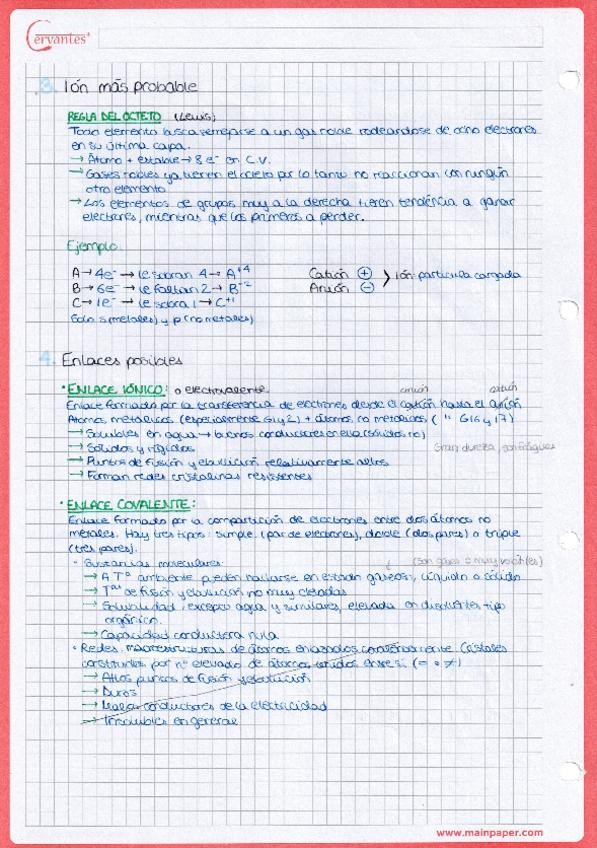 Cervantes
3. Ión más probable
REGLA DEL OCTETO (Lewis)
Todo elemento busca semejarse a un gas noble rodeándose de ocho electrones
en su última capa.
→ Átomo + estable → 8 e⁻ en C.V.
→ Gases nobles ya tienen el octeto por lo tanto no reaccionan con ningún
otro elemento.
→ Los elementos de grupos muy a la derecha tienen tendencia a ganar
electrones, mientras que los primeros a perder.
Ejemplo
A → 4e⁻ → le sobran 4 → A⁺⁴ Catión ⊕
B → 6e⁻ → le faltan 2 → B⁻² Anión ⊖ > Ión: partícula cargada
C → 1e⁻ → le sobra 1 → C⁺¹
Solo s (metales) y p (no metales)
4. Enlaces posibles
• ENLACE IÓNICO: o electrovalente. anión catión
Enlace formado por la transferencia de electrones desde el catión hasta el anión
Átomos metálicos (especialmente G1 y 2) + átomos no metálicos ( " G16 y 17)
→ Solubles en agua → buenos conductores en ella (sólidos no)
→ Sólidos y rígidos Gran dureza, son frágiles
→ Puntos de fusión y ebullición relativamente altos
→ Forman redes cristalinas resistentes
• ENLACE COVALENTE:
Enlace formado por la compartición de electrones entre dos átomos no
metales. Hay tres tipos: simple (par de electrones), doble (dos pares) o triple
(tres pares).
• Sustancias moleculares: (son gases o muy volátiles)
→ A Tª ambiente pueden hallarse en estado gaseoso, líquido o sólido
→ Tªs de fusión y ebullición no muy elevadas
→ Solubilidad, excepto agua y similares, elevada en disolventes tipo
orgánico.
→ Capacidad conductora nula
• Redes: macroestructuras de átomos enlazados covalentemente. Cristales
constituidos por nº elevado de átomos unidos entre sí (= o ≠)
→ Altos puntos de fusión y ebullición
→ Duros
→ Malos conductores de la electricidad
→ Insolubles en general
www.mainpaper.com